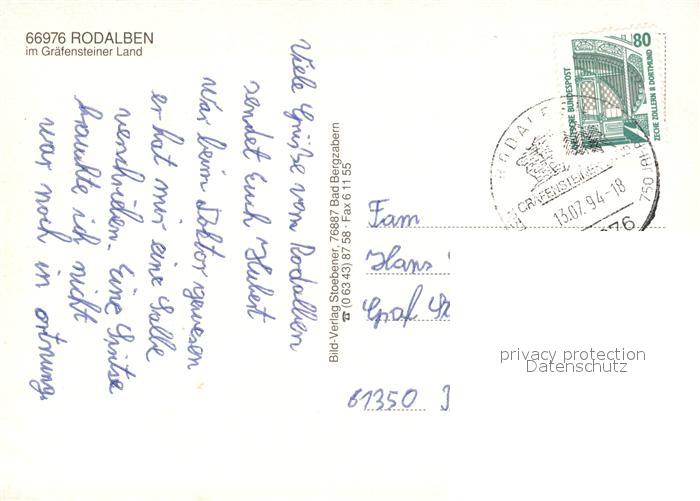 66976 RODALBEN
im Gräfensteiner Land
Viele Grüße vom Rodalben
sendet Euch Hubert
War beim Doktor gewesen
er hat mir eine Salbe
verschrieben. Eine Spritze
brauchte ich nicht
war noch in ortnung.
Bild-Verlag Stoebener, 76887 Bad Bergzabern
☎ (0 63 43) 87 58 · Fax 6 11 55
80
DEUTSCHE BUNDESPOST
ZECHE ZOLLERN II, DORTMUND
RODALBEN
GRÄFENSTEINER
750 JAHR
13.07.94-18
Fam
Hans
Graf
61350
privacy protection
Datenschutz